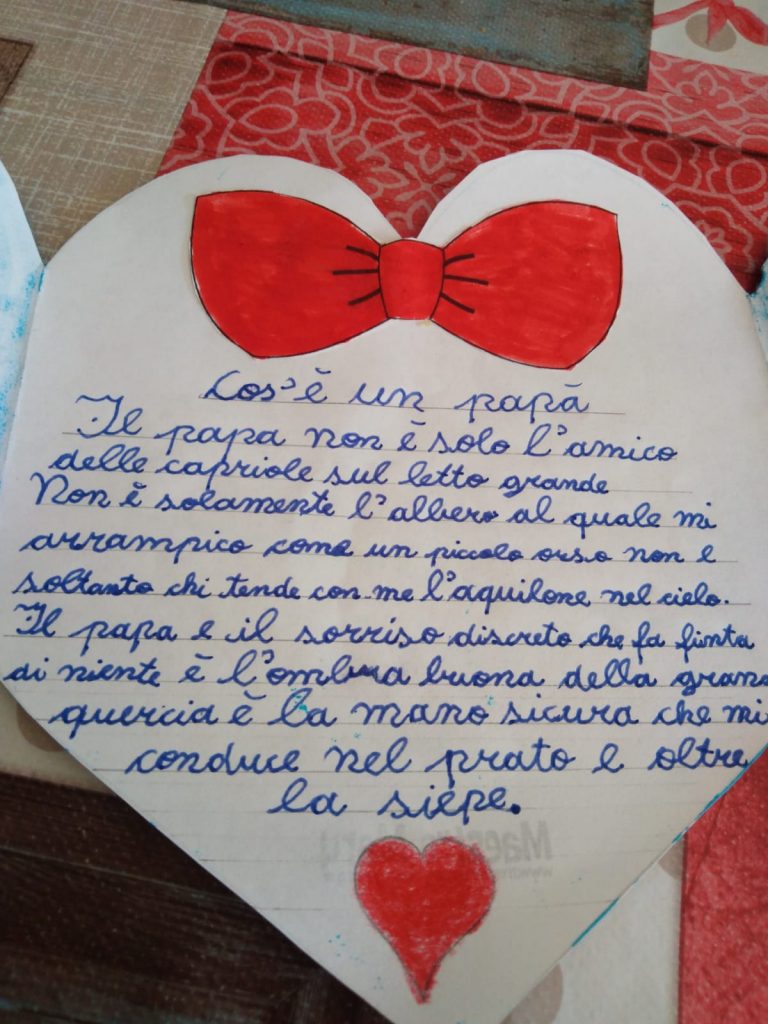 Cos'è un papà
Il papa non è solo l'amico
delle capriole sul letto grande
Non è solamente l'albero al quale mi
arrampico come un piccolo orso non e
soltanto chi tende con me l'aquilone nel cielo.
Il papa e il sorriso discreto che fa finta
di niente è l'ombra buona della gran
quercia è la mano sicura che mi
conduce nel prato e oltre
la siepe.